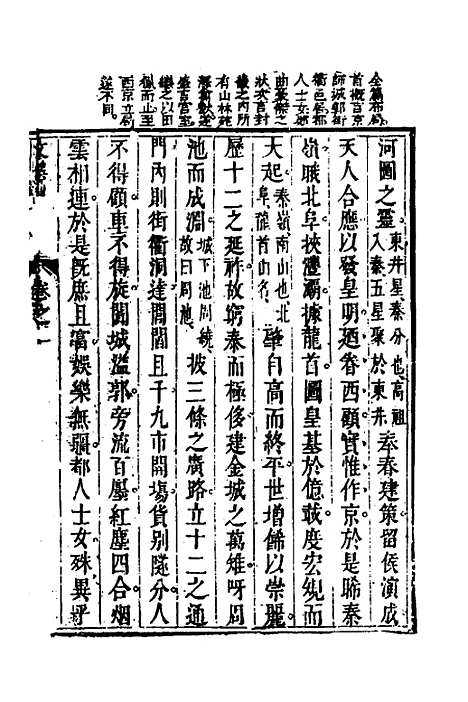 全篇布局
首概言京
師城郭街
衢邑居都
人士女
有山林
之以田
西京立局
迥不同
河圖之靈東井星秦分也高祖入秦五星聚於東井奉春建策留侯演成
天人合應以發皇明廼眷西顧實惟作京於是睎秦
嶺睋北阜挾灃灞據龍首圖皇基於億載度宏規而
大起秦嶺南山也北阜雍首山名肇自高而終平世增餙以崇麗
歷十二之延祚故窮泰而極侈建金城之萬雉呀周
池而成淵城下池周繞故曰周池披三條之廣路立十二之通
門內則街衢洞達閭閻且千九市開塲貨別隧分人
不得顧車不得旋闐城溢郭旁流百廛紅塵四合烟
雲相連於是既庶且富娛樂無疆都人士女殊異乎